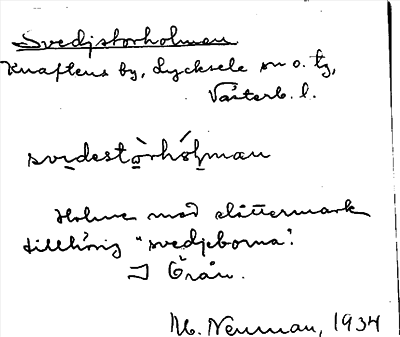 Svedjstorholmen
Knaftens by, Lycksele sn o. tg,
Västerb. l.
svi̱destò̱rhó̱ḷman
Holme med slåttermark
tillhörig "svedjeborna".
I Örån.
M. Neuman, 1934